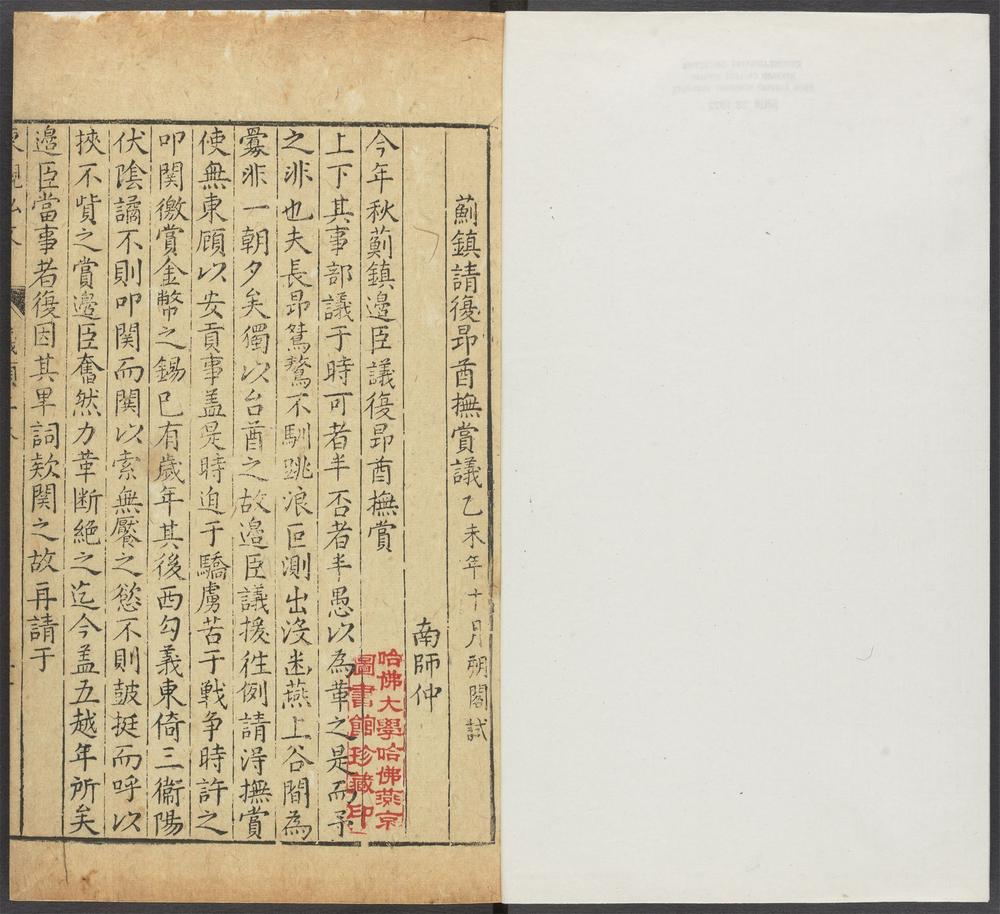 薊鎮請復昻酋撫賞議乙未年十月朔閣試
南師仲
今年秋薊鎮邊臣議復昻酋撫賞
上下其事部議于時可者半否者半愚以為革之是而予
之非也夫長昻驁鶩不馴跳浪叵測出没迷燕上谷間為
釁非一朝夕矣獨以台酋之故邊臣議援徃例請淂撫賞
使無東顧以安貢事盖是時迫于驕虜苦于戰争時許之
叩関徼賞金幣之錫已有歲年其後西勾義東倚三衞陽
伏陰譎不則叩関而闋以索無饜之慾不則鼓挺而呼以
挾不貲之賞邊臣奮然力革断絶之迄今盖五越年所矣
邉臣當事者復因其畢詞欵関之故再請于
哈佛大學哈佛燕京
圖書館珍藏印